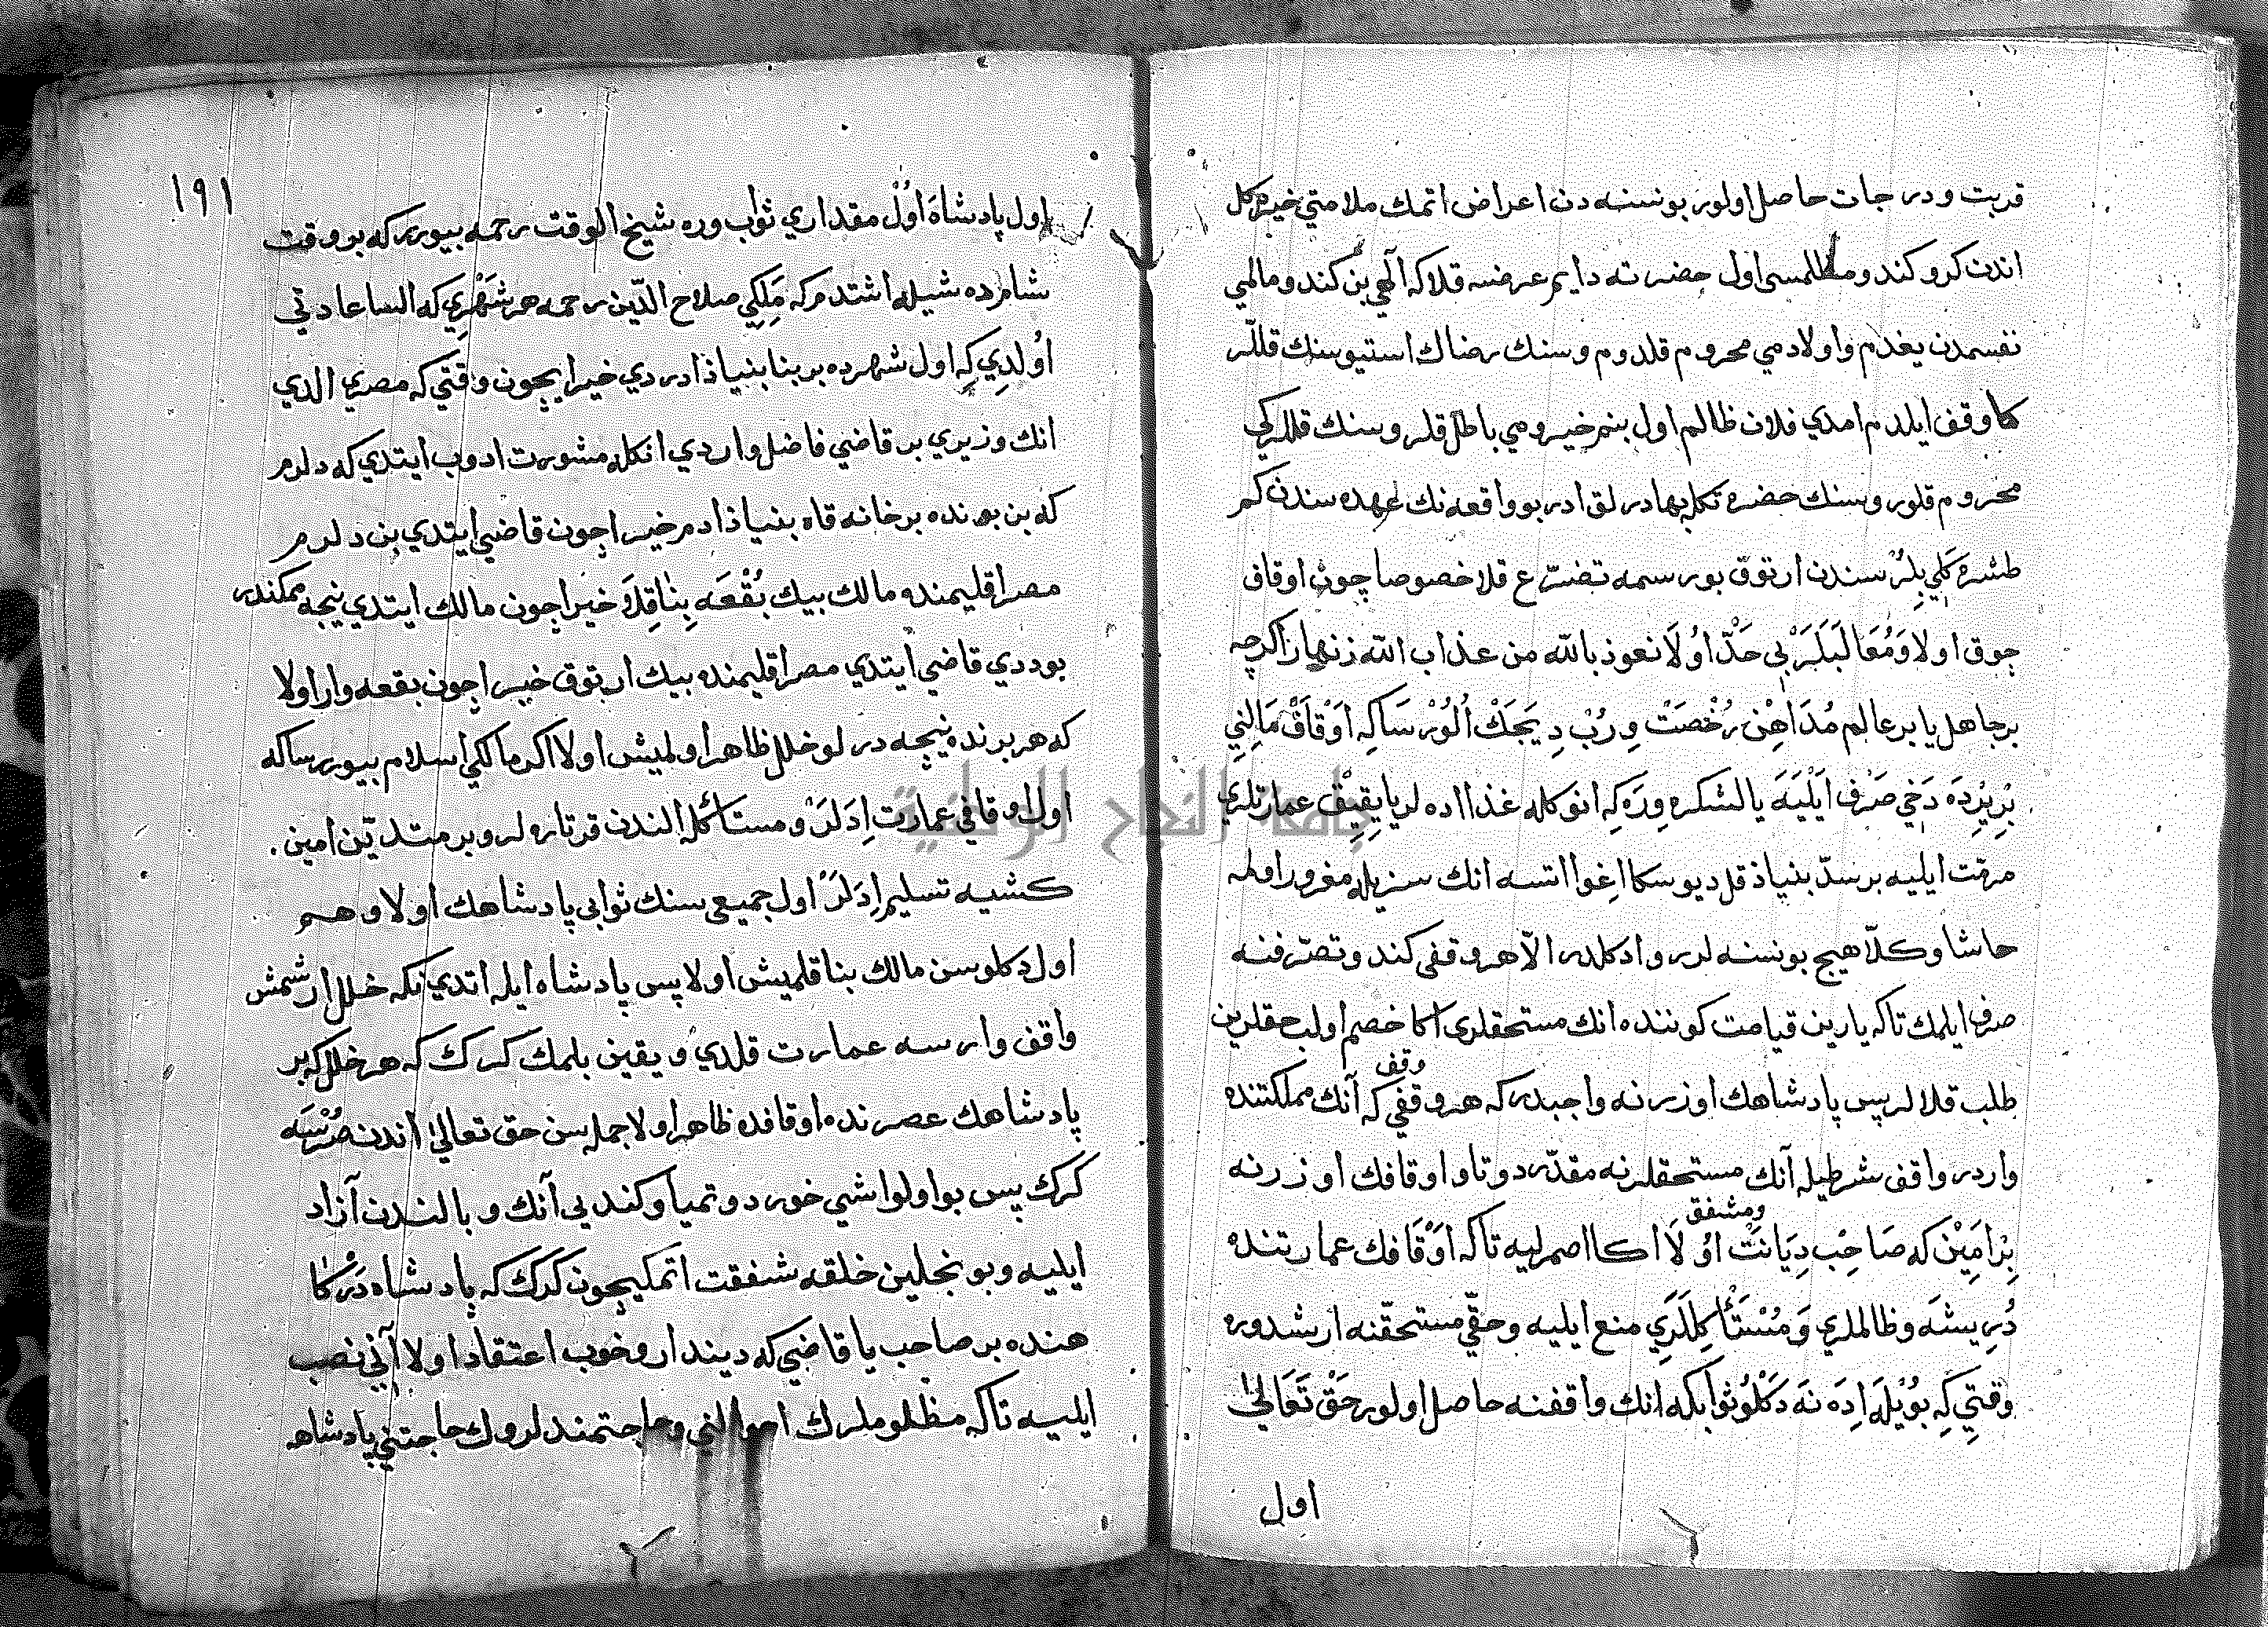 قربت ودرجات حاصل اولور بونسنه دن اعراض اتمك ملامتي خيره كل
اندن كرو كندو مظالمسى اول حضرته دايم عرضه قلا كه الهي بن كندو مالمي
نفسمدن يغدم واولادمي محروم قلدوم وسنك رضاك استيو سنك قللّر
كا وقف ايلدم امدي فلان ظالم اول بنم خيرومي باطل قلر وسنك قللركي
محروم قلور وسنك حضرة تكله بهادرلق ادر بو واقعه نك عهده سندن كم
طشره كلي بلر سندن ارتوق بو رسمه تضرّع قلا خصوصا چون اوقاف
چوق اولا ومعا لبلر بي حدّ اولا نعوذ بالله من عذاب الله زنهار اكرچه
بر جاهل يا بر عالم مداهن رخصت وروب ديجك الور ساكه اوقاف مالني
بريرده دخي صرف ايليه يا لشكره وره كه انوكله غذا اده لر يا يقيق عمارتلري
مرمّت ايليه بر سدّ بنياذ قل ديو سكا اغوا اتسه انك سزيله مغرور اولمه
حاشا وكلّا هيچ بونسنه لر روا دكلدر الّا هر وقفى كندو تصرّفنه
صرف ايلمك تاكه يارين قيامت كوننده انك مستحقلرى اكا خصم اولب حقلرين
طلب قلالر پس پادشاهك اوزرنه واجبدر كه هر وقفي كه آنك مملكتنده
وقف
واردر واقف شرطيله آنك مستحقلرنه مقدّر دوتا و اوقافك اوزرنه
بر امين كه صاحب ديانت اولا اكا اصمرليه تاكه اوقافك عمارتنده
ومشفق
دريشه وظالملري ومستأكللري منع ايليه وحقّي مستحقّنه ارشدوره
وقتي كه بويله اده نه دكلو ثوابكه انك واقفنه حاصل اولور حق تعالى
اول
١٩١
اول پادشاه اول مقداري ثواب وره شيخ الوقت رحمه بيورر كه بر وقت
شامرده شيله اشتدم كه ملكي صلاح الدّين رحمه هر شهري كه السا عادتي
اولدي كه اول شهرده بر بنا بنياذ ادردي خير ايچون وقتي كه مصري الدي
انك وزيري بر قاضي فاضل واردي انكله مشورت ادوب ايتدي كه دلرم
كه بن بونده بر خانه قاه بنياذ ادم خير اچون قاضي ايتدي بن دلرم
مصر اقليمنده مالك بيك بقعه بنا قلا خير اچون مالك ايتدي نيجه ممكندر
بو ددي قاضي ايتدي مصر اقليمنده بيك ارتوق خير اچون بقعه وار اولا
كه هر برنده نيچه درلو خلل ظاهر اولميش اولا اكر مالكي اسلام بيورر ساكه
اول اوقافي عمارت ادلر ومستأكل الندن قرتاره لر و بر متديّن امين
كشيه تسليم ادلر اول جميعي سنك ثوابي پادشاهك اولا وهم
اول دكلو سن مالك بنا قلميش اولا پس پادشاه ايله اتدي نكه خلل ارشمش
واقف وارسه عمارت قلدي ويقين بلمك كرك كه هر خلل كه بر
پادشاهك عصرنده اوقافده ظاهر اولا جمله سن حق تعالى اندن صرسه
كرك پس بو اولو اشي خور دوتميا و كندبي آنك وبالندن آزاد
ايليه وبونجلين خلقه شفقت اتمكيچون كرك كه پادشاه دركا
هنده بر صاحب يا قاضي كه ديندار وخوب اعتقاد اولا آني نصب
ايليه تاكه مظلوملرك احوالني وحاجتمندلروك حاجتني پادشاه